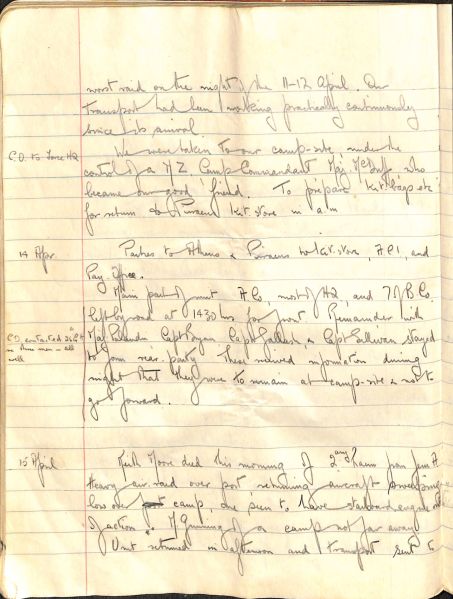 worst raid on the night of the 11-12 April. Our
transport had been working practically continuously
since its arrival.
C.O. to Force HQ
We were taken to our camp-site, under the
control of a NZ Camp Commandant Maj who
became our good friend. To prepare kit bags etc
for return to Piraeus kit store in a.m
14 Apr
Parties to Athens & Piraeus kit store, and
Pay Office.
Main part of unit A Co, most of HQ, and 7 of B Co.
left by road at 1430 hrs for front Remainder with
C.O. contacted
men - all
well
Maj Capt Bryan Capt & Capt Sullivan stayed
to form rear party These received information during
night that they were to remain at camp-site & not to
go forward.
15 April
Keith Moore died this morning of 2ary haem from
Heavy air raid over port, returning aircraft
low over camp, one seen to have starboard engine out
of action. M Gunning of a camp not far away
Unit returned in afternoon and transport sent to